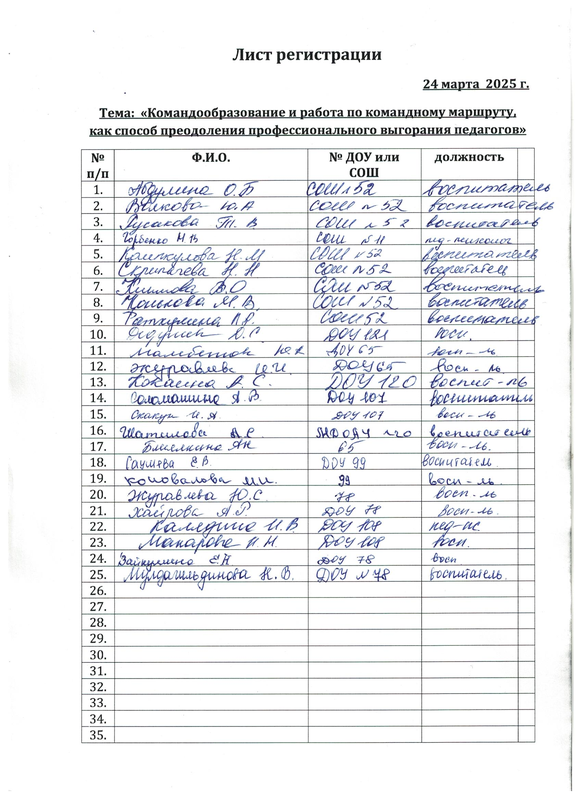 Лист регистрации
24 марта 2025 г.
Тема: «Командообразование и работа по командному маршруту,
как способ преодоления профессионального выгорания педагогов»
№ п/п Ф.И.О. № ДОУ или СОШ должность
1. Абдулина О.Б СОШ №52 воспитатель
2. Волкова Ю.А СОШ №52 воспитатель
3. Гусакова Т. В СОШ №52 воспитатель
4. Горбенко Н В СОШ №11 пед-психолог
5. Н.М СОШ №52 воспитатель
6. Скрипачева Н. Н СОШ №52 воспитатель
7. Климова В.О СОШ №52 воспитатель
8. Конькова М.В. СОШ №52 воспитатель
9. СОШ 52 воспитатель
10. О.С. ДОУ 121 восп.
11. Ю.А ДОУ 65 восп-ль
12. Журавлева Ю.И. ДОУ 65 восп-ль.
13. А. С. ДОУ 120 воспит-ль
14. Соломашина А.В ДОУ 107 воспитатель
15. И.А. ДОУ 107 восп-ль
16. Шатилова воспитатель
17. 65 восп-ль.
18. Саушева Е.В. ДОУ 99 воспитатель.
19. Коновалова М.И. 99 восп-ль.
20. Журавлева Ю.С. 78 восп-ль
21. Хаирова А.Р. ДОУ 78 восп-ль
22. Калядина И.В ДОУ 108 пед-пс.
23. Макарова Н.Н. ДОУ 108 восп.
24. Е.А ДОУ 78 восп
25. Мулдашьдинова Н.В. ДОУ №78 воспитатель.
26.
27.
28.
29.
30.
31.
32.
33.
34.
35.